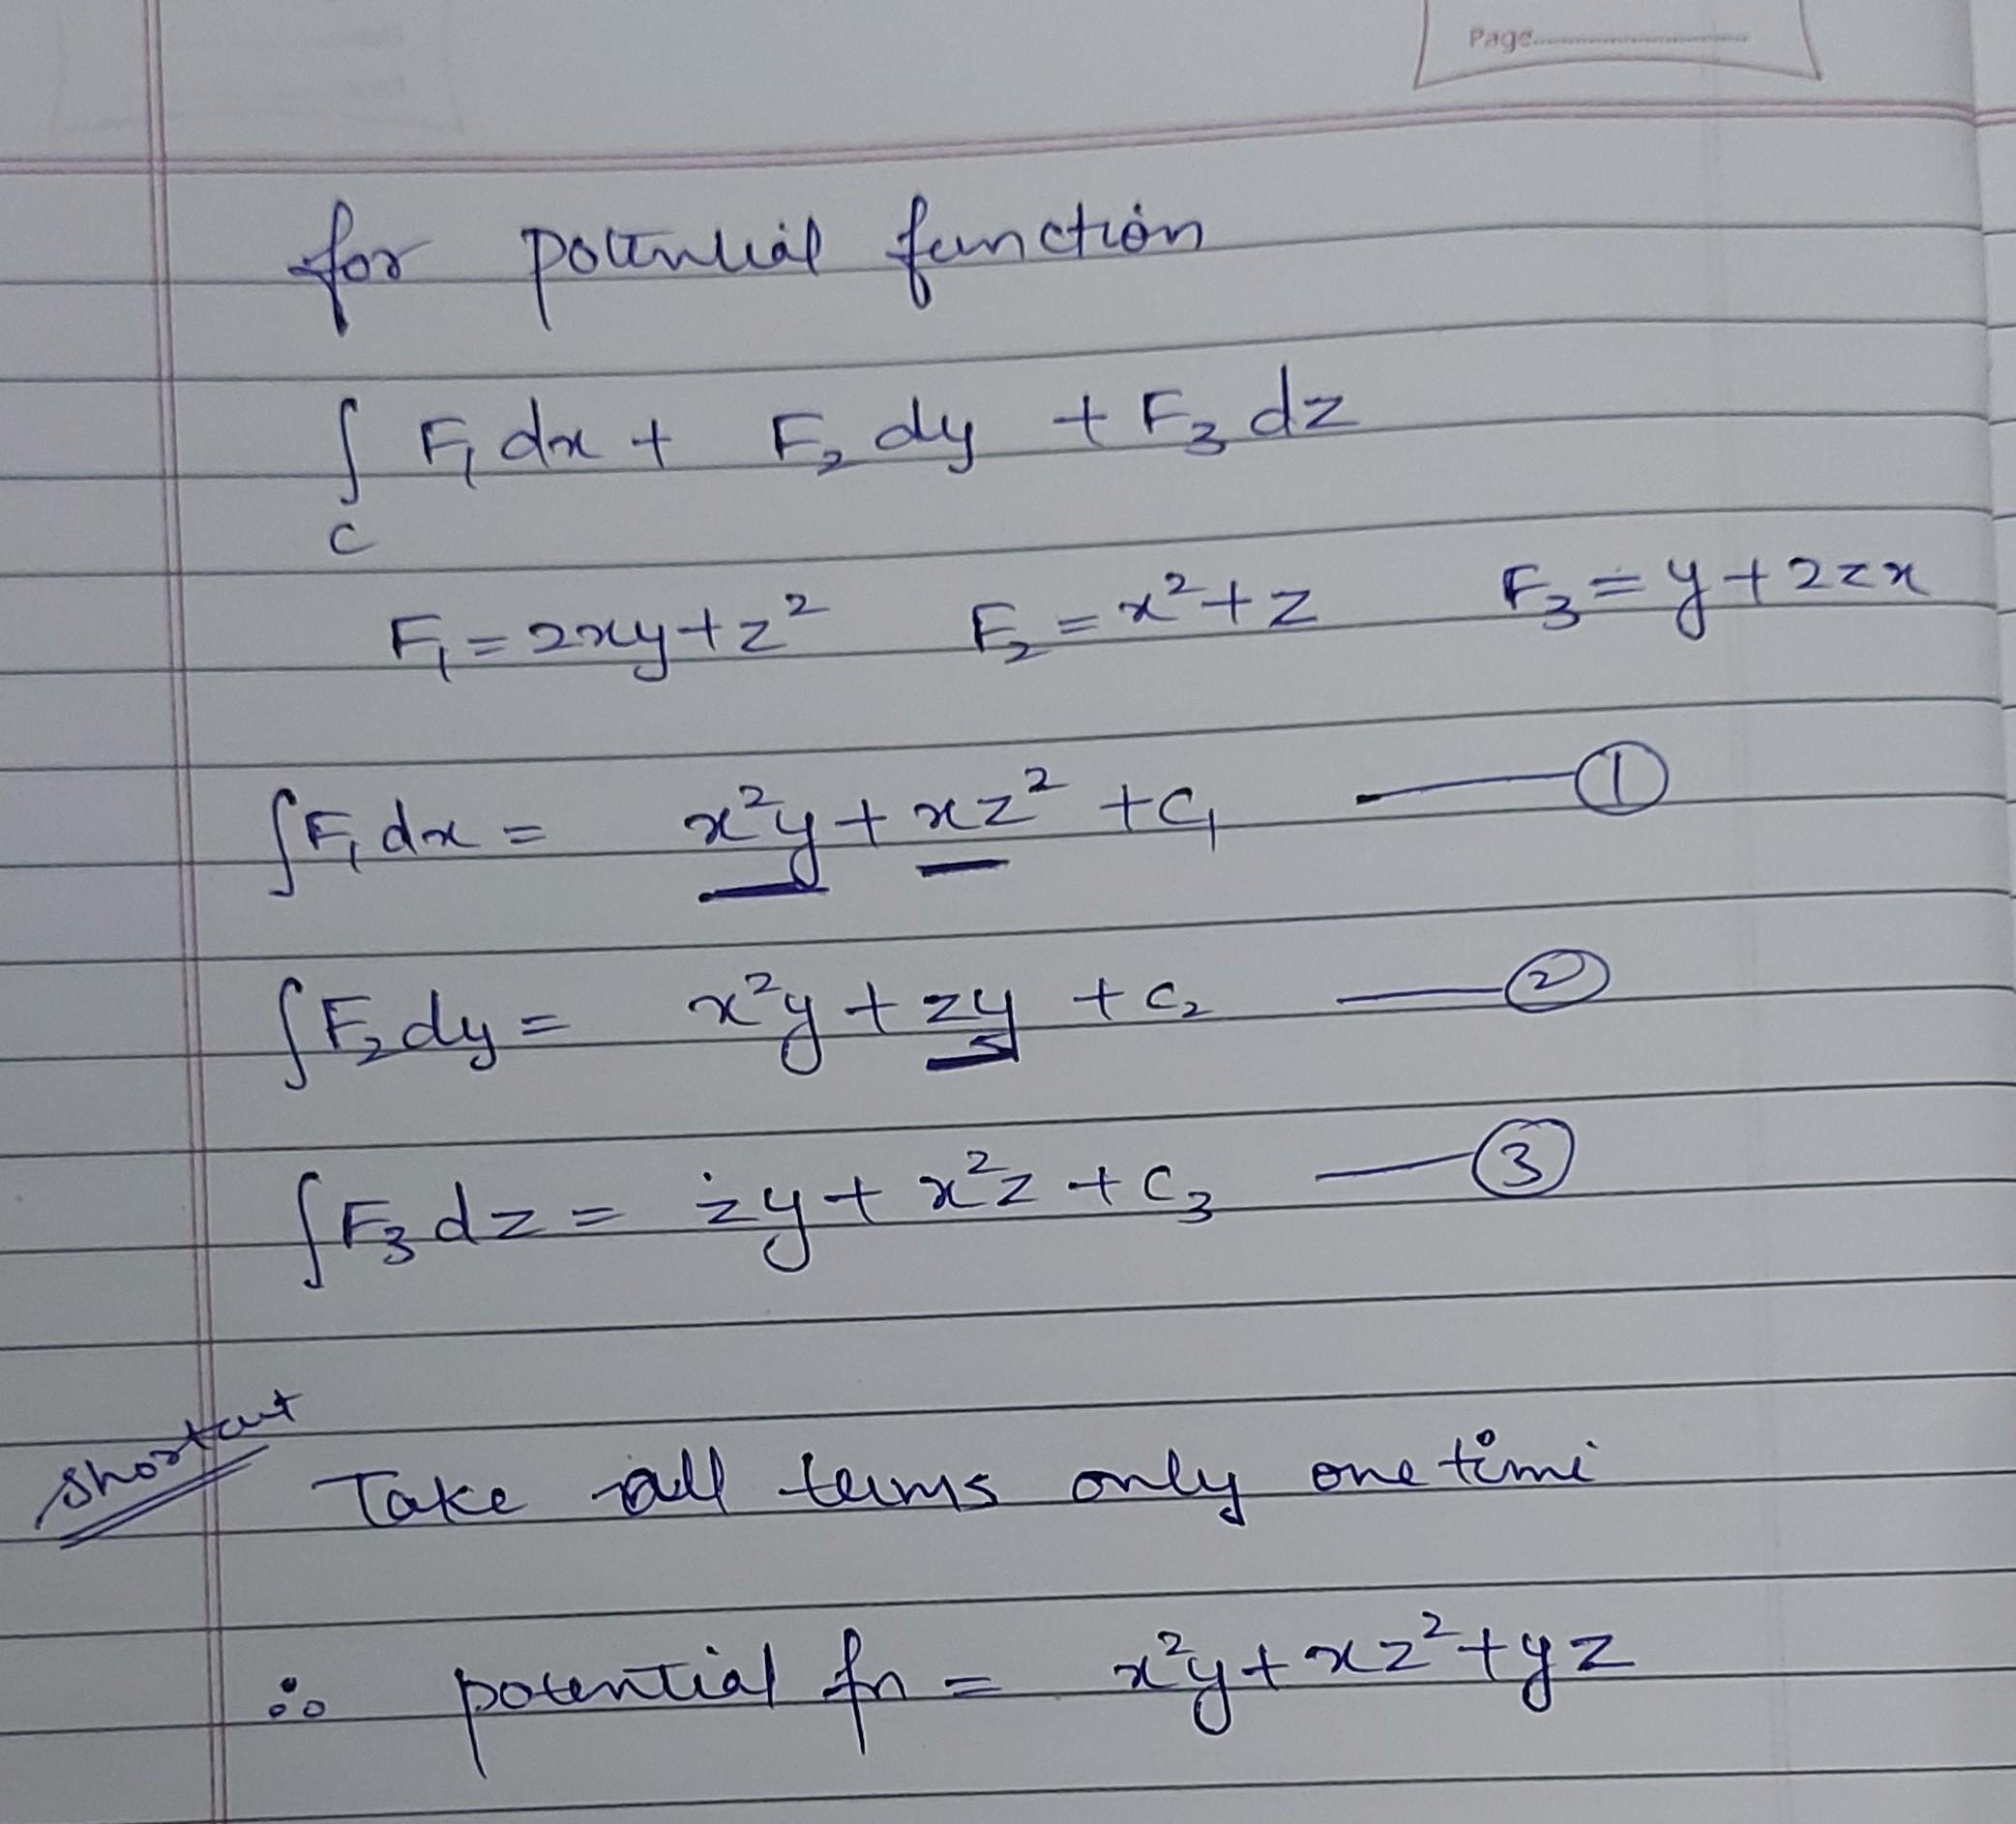 Page
for potential function
∫ F₁ dx + F₂ dy + F₃ dz
C
F₁ = 2xy + z² F₂ = x² + z F₃ = y + 2zx
∫F₁ dx = x²y + xz² + C₁ — ①
∫F₂ dy = x²y + zy + C₂ — ②
∫F₃ dz = zy + x²z + C₃ — ③
Shortcut
Take all terms only one time
∴ potential fn = x²y + xz² + yz